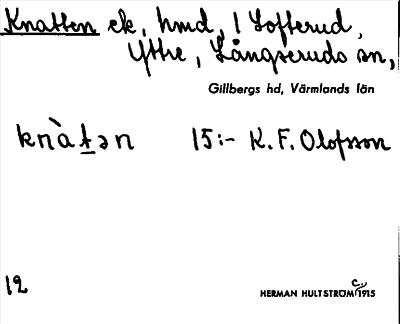 Knatten ek, hmd, 1 Lofterud,
Yttre, Långseruds sn,
Gillbergs hd, Värmlands län
knàtən 15:- K. F. Olofsson
12
HERMAN HULTSTRÖM C:a 1915